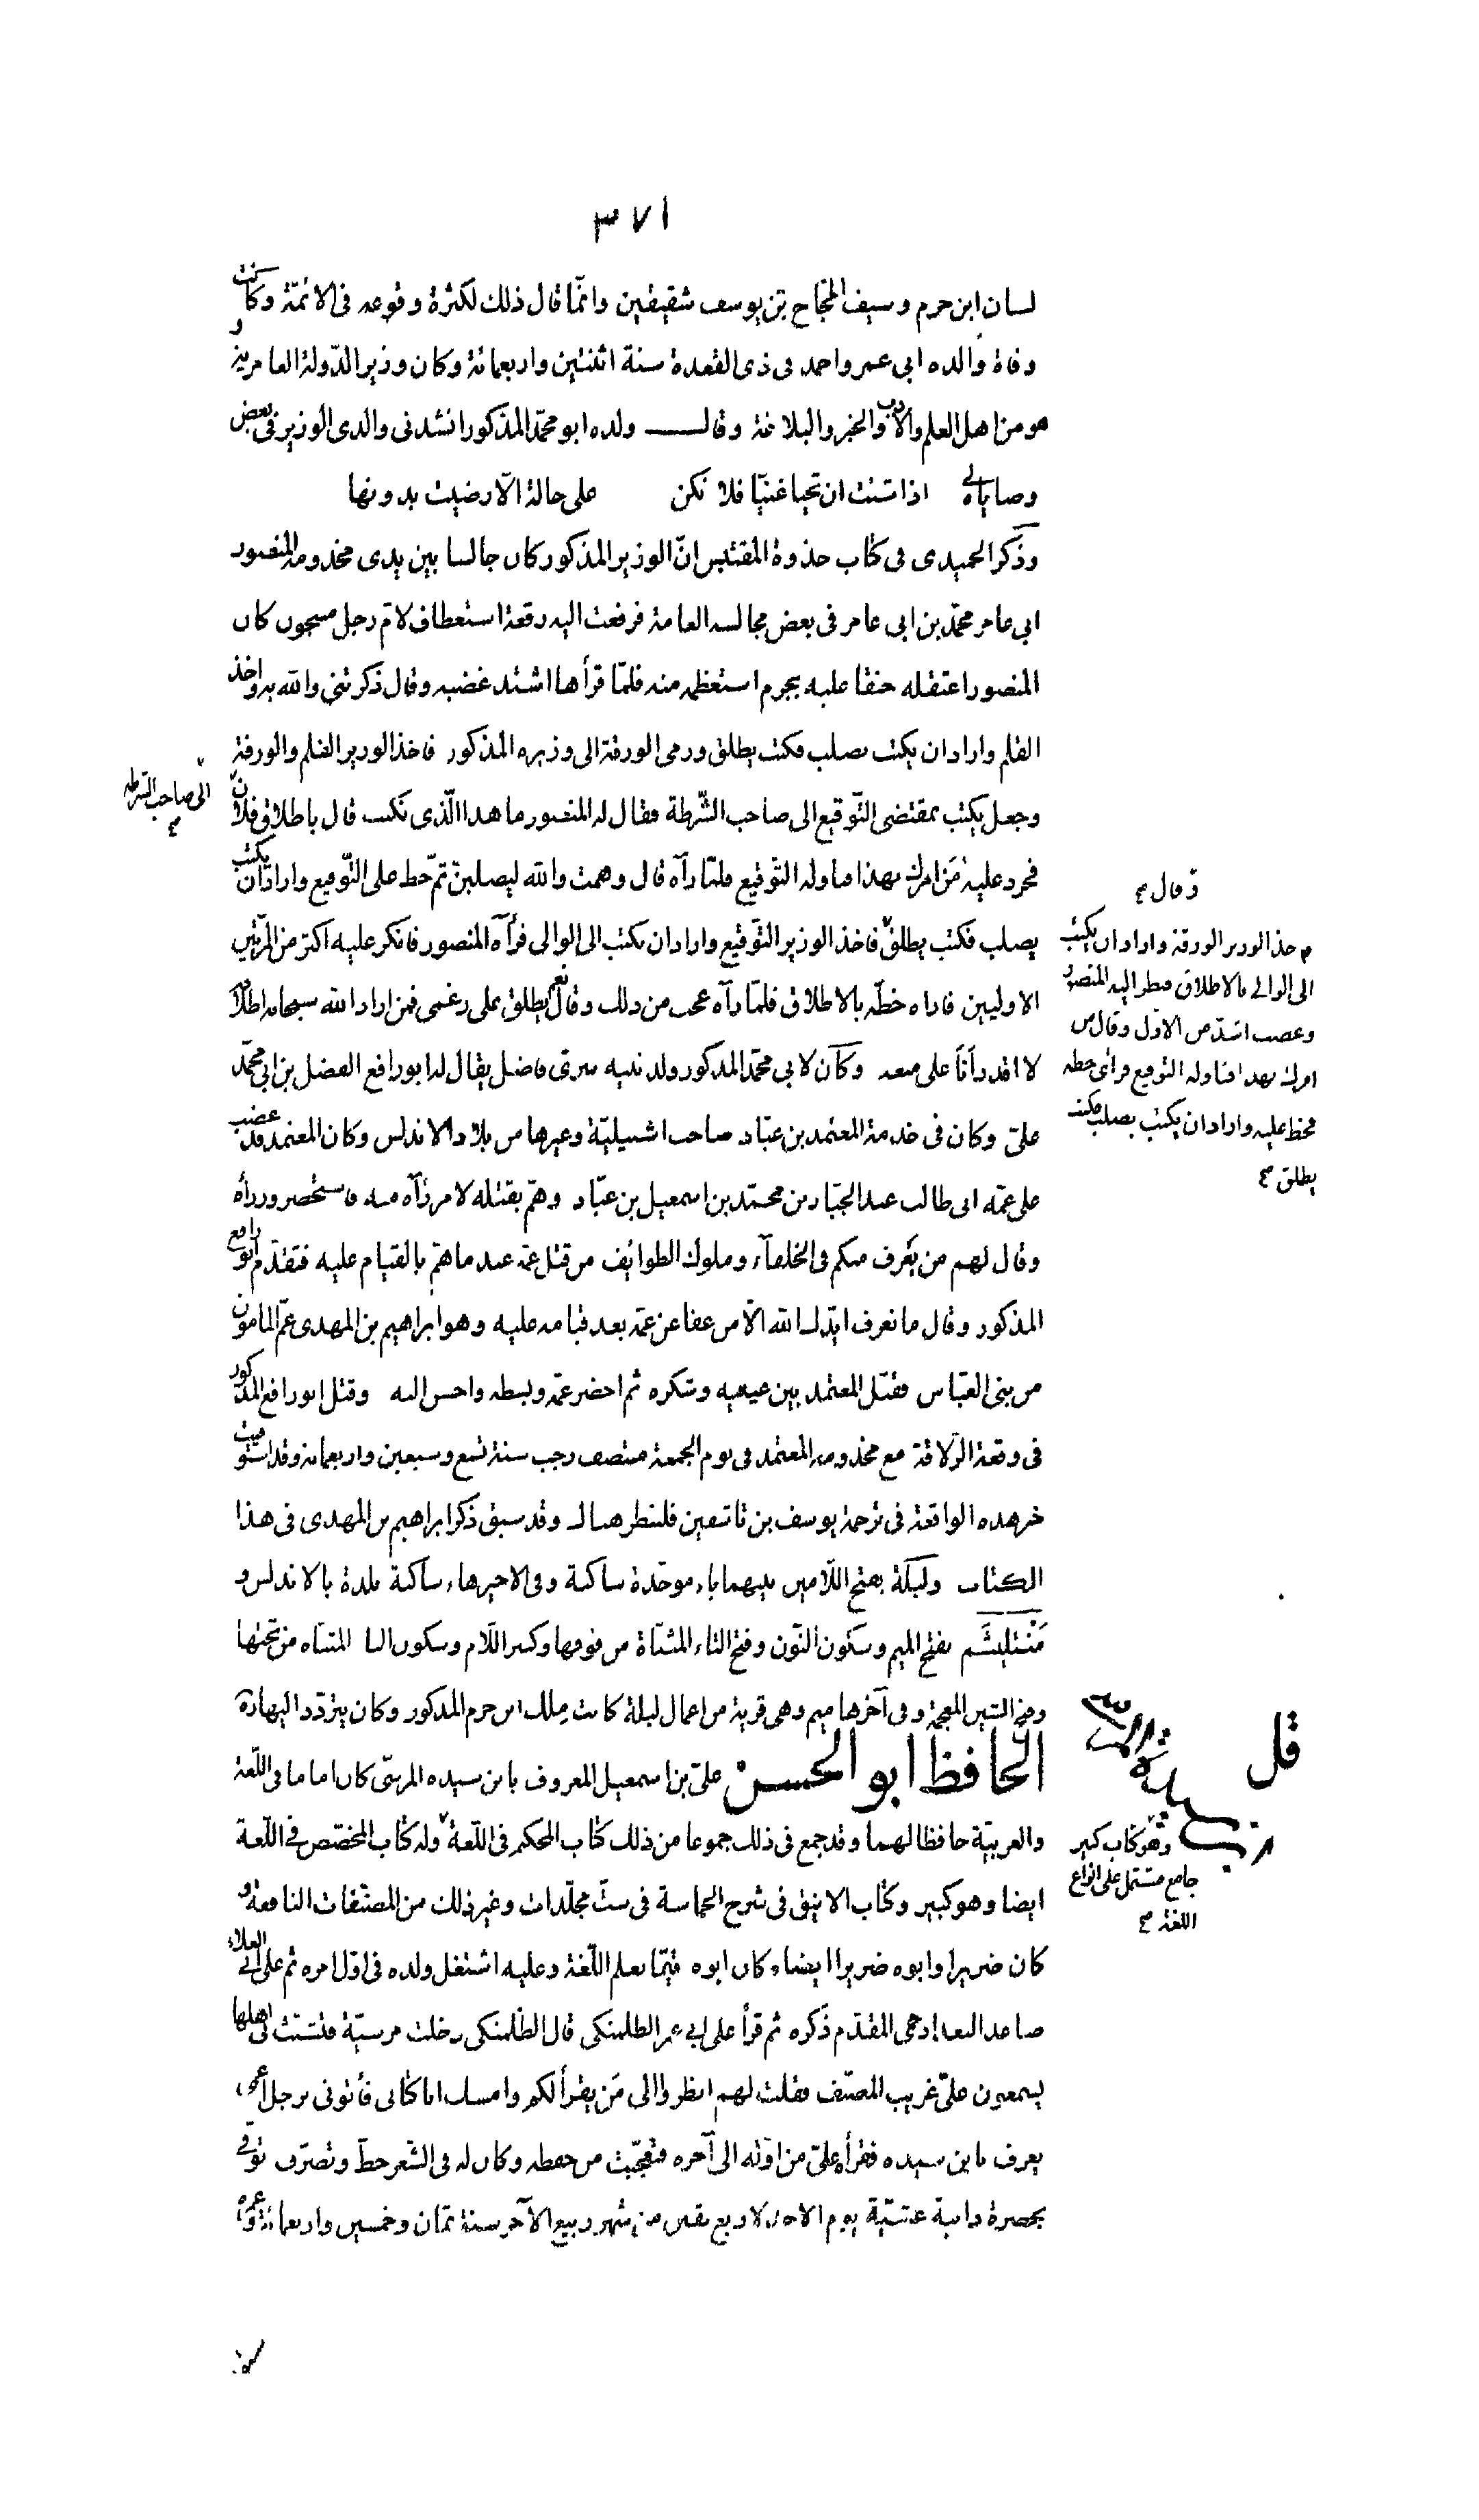 ٣٧١
لسان ابن حزم وسيف الحجاج بن يوسف شقيقين وانّما قال ذلك لكثرة وقوعه فى الائمّة وكانت
وفاة والده ابي عمر واحمد فى ذى القعدة سنة اثنتين واربعمائة وكان وزير الدّولة العامرية و
هو من اهل العلم والادب والخير والبلاغة وقال ولده ابو محمّد المذكور انشدنى والدى الوزير فى بعض
وصاياه لى اذا شئت ان تحيا غنيّا فلا تكن على حالة الّا رضيت بدونها
وذكر الحميدى فى كتاب جذوة المقتبس انّ الوزير المذكور كان جالسا بين يدى مخدومه المنصور
ابى عامر محمّد بن ابى عامر فى بعض مجالسه العامة فرفعت اليه رقعة استعطاف لامّ رجل مسجون كان
المنصور اعتقله حنقا عليه بجرم استعظمه منه فلمّا قرأها اشتد غضبه وقال ذكرتنى والله به واخذ
القلم واراد ان يكتب يصلب فكتب يطلق ورمى الورقة الى وزيره المذكور فاخذ الوزير القلم والورقة
وجعل يكتب بمقتضى التّوقيع الى صاحب الشّرطة فقال له المنصور ما هذا الّذى تكتب قال باطلاق فلان
الى صاحب الشرطه صح
فحرد عليه مَن امرك بهذا فناوله التّوقيع فلمّا رآه قال وهمت والله ليصلبنّ ثمّ خط على التّوقيع واراد ان يكتب
يصلب فكتب يطلق فاخذ الوزير التّوقيع واراد ان يكتب الى الوالى فرآه المنصور فانكر عليه اكثر من المرّتين
الاوليين فاراه خطّه بالاطلاق فلمّا رآه عجب من ذلك وقال نعم يطلق على رغمى فمن اراد الله سبحانه اطلاقه
لا اقدر أنا على منعه وكان لابى محمّد المذكور ولد نبيه سرىّ فاضل يقال له ابو رافع الفضل بن ابى محمّد
علىّ وكان فى خدمة المعتمد بن عبّاد صاحب اشبيليّة وغيرها من بلاد الاندلس وكان المعتمد قد غضب
على عمّه ابى طالب عبد الجبّار بن محمّد بن اسمعيل بن عبّاد وهمّ بقتله لامر رآه منه فاستحضر وزرأه
وقال لهم من يعرف منكم فى الخلفآء وملوك الطوائف من قتل عمّه عندما همّ بالقيام عليه فتقدّم ابو رافع
المذكور وقال ما نعرف ايّدك الله الّا من عفا عن عمّه بعد قيامه عليه وهو ابراهيم بن المهدى عمّ المامون
من بنى العبّاس فقبّل المعتمد بين عينيه وشكره ثم احضر عمّه وبسطه واحسن اليه وقتل ابو رافع المذكور
فى وقعة الزّلاقة مع مخدومه المعتمد فى يوم الجمعة منتصف رجب سنة تسع وسبعين واربعمائة وقد استوفيت
خبر هذه الواقعة فى ترجمة يوسف بن تاشفين فلينظر هناك وقد سبق ذكر ابراهيم بن المهدى فى هذا
الكتاب ولَبلَة بفتح اللّامين بينهما باء موحّدة ساكنة وفى الاخير هاء ساكنة بلدة بالاندلس و
مَنْتلِيشَم بفتح الميم وسكون النّون وفتح التاء المثنّاة من فوقها وكسر اللّام وسكون اليا المثناه من تحتها
وفتح الشين المعجمة وفى آخرها ميم وهى قرية من اعمال لبلة كانت ملك ابن حزم المذكور وكان يتردّد اليها
الحافظ ابو الحسن علىّ بن اسمعيل المعروف بابن سيده المرسى كان اماما فى اللّغة
والعربيّة حافظا لهما وقد جمع فى ذلك جموعا من ذلك كتاب المحكم فى اللّغة وله كتاب المخصّص فى اللّغة
ايضا وهو كبير وكتاب الانيق فى شرح الحماسة فى ستّ مجلّدات وغير ذلك من المصنّفات النافعة و
كان ضريرا وابوه ضريرا ايضا وكان ابوه قيّما بعلم اللّغة وعليه اشتغل ولده فى اوّل امره ثم على ابى العلاء
صاعد البغدادى المقدّم ذكره ثم قرأ على ابى عمر الطلمنكى قال الطلمنكى دخلت مرسيّة فتشبّث بى اهلها
يسمعون علىّ غريب المصنّف فقلت لهم انظروا الى مَن يقرأ لكم وامسك انا كتابى فأتونى برجل اعمى
يعرف بابن سيده فقرأه علىّ من اوّله الى آخره فتعجّبت من حفظه وكان له فى الشّعر حظّ وتصرّف توفى
بحضرة دانية عشيّة يوم الاحد لاربع بقين من شهر ربيع الآخر سنة ثمان وخمسين واربعمائة وعمره
وقال صح
فاخذ الوزير الورقة واراد ان يكتب
الى الوالى بالاطلاق فنظر اليه المنصور
وغضب اشدّ من الاوّل وقال من
امرك بهذا فناوله التوقيع فرأى خطه
فخط عليه واراد ان يكتب يصلب فكتب
يطلق صح
بن سيده
وهو كتاب كبير
جامع مشتمل على انواع
اللغة صح